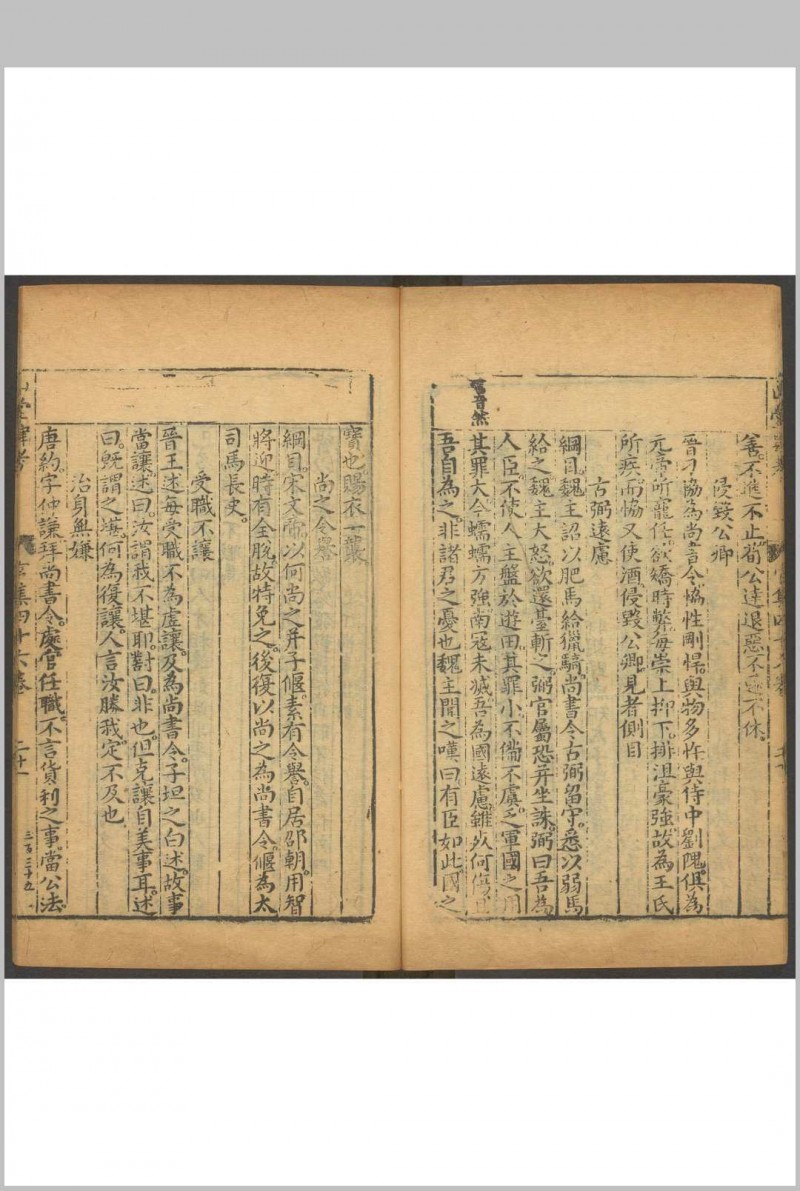 善不進不止荀公達退惡不退不休
侵毀公卿
晉刁協為尚書令協性剛悍與物多忤與侍中劉隗俱為
元帝所寵任欲矯時弊每崇上抑下排沮豪強故為王氏
所疾而協又使酒侵毀公卿見者側目
古弼遠慮
綱目魏主詔以肥馬給獵騎尚書令古弼留守悉以弱馬
給之魏主大怒欲還臺斬之弼官屬恐并坐誅弼曰吾為
人臣不使人主盤於遊田其罪小不備不虞乏軍國之用
其罪大今蠕蠕方強南冦未滅吾為國遠慮雖死何傷且
蠕音然
吾自為之非諸君之憂也魏主聞之嘆曰有臣如此國之
寶也賜衣一襲
尚之令譽
綱目宋文帝以何尚之并子偃素有令譽自居邵朝用智
將迎時有全脫故特免之後復以尚之為尚書令偃為太
司馬長史
受職不讓
晉王述每受職不為虛讓及為尚書令子坦之白述故事
當讓述曰汝謂我不堪耶對曰非也但克讓自美事耳述
曰旣謂之堪何為復讓人言汝勝我定不及也
治身無嫌
唐約字仲謙拜尚書令廉官任職不言貨利之事當公法
山堂肆考
宮集四十六卷
二十一
三百三十九